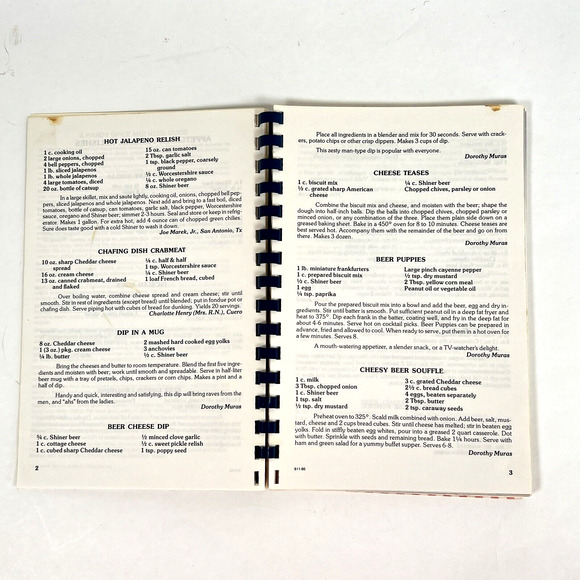 HOT JALAPENO RELISH
1 c. cooking oil
2 large onions, chopped
4 bell peppers, chopped
1 lb. sliced jalapenos
1 lb. whole jalapenos
4 large tomatoes, diced
20 oz. bottle of catsup
15 oz. can tomatoes
2 Tbsp. garlic salt
1 tsp. black pepper, coarsely
ground
½ c. Worcestershire sauce
¼ c. whole oregano
8 oz. Shiner beer
In a large skillet, mix and saute lightly, cooking oil, onions, chopped bell pep-
pers, sliced jalapenos and whole jalapenos. Next add and bring to a fast boil, diced
tomatoes, bottle of catsup, can tomatoes, garlic salt, black pepper, Worcestershire
sauce, oregano and Shiner beer; simmer 2-3 hours. Seal and store or keep in refrig-
erator. Makes 1 gallon. For extra hot, add 4 ounce can of chopped green chilies.
Sure does taste good with a cold Shiner to wash it down.
Joe Marek, Jr., San Antonio, Tx
CHAFING DISH CRABMEAT
10 oz. sharp Cheddar cheese
spread
16 oz. cream cheese
13 oz. canned crabmeat, drained
and flaked
¼ c. half & half
1 tsp. Worcestershire sauce
¼ c. Shiner beer
1 loaf French bread, cubed
Over boiling water, combine cheese spread and cream cheese; stir until
smooth. Stir in rest of ingredients (except bread) until blended; put in fondue pot or
chafing dish. Serve piping hot with cubes of bread for dunking. Yields 20 servings.
Charlotte Henry (Mrs. R.N.), Cuero
DIP IN A MUG
8 oz. Cheddar cheese
1 (3 oz.) pkg. cream cheese
¼ lb. butter
2 mashed hard cooked egg yolks
3 anchovies
½ c. Shiner beer
Bring the cheeses and butter to room temperature. Blend the first five ingre-
dients and moisten with beer; work until smooth and spreadable. Serve in half-liter
beer mug with a tray of pretzels, chips, crackers or corn chips. Makes a pint and a
half of dip.
Handy and quick, interesting and satisfying, this dip will bring raves from the
men, and "ahs" from the ladies.
Dorothy Muras
BEER CHEESE DIP
¾ c. Shiner beer
1 c. cottage cheese
1 c. cubed sharp Cheddar cheese
½ minced clove garlic
½ c. sweet pickle relish
1 tsp. poppy seed
2
Place all ingredients in a blender and mix for 30 seconds. Serve with crack-
ers, potato chips or other crisp dippers. Makes 3 cups of dip.
This zesty man-type dip is popular with everyone.
Dorothy Muras
CHEESE TEASES
1 c. biscuit mix
½ c. grated sharp American
cheese
¼ c. Shiner beer
Chopped chives, parsley or onion
Combine the biscuit mix and cheese, and moisten with the beer; shape the
dough into half-inch balls. Dip the balls into chopped chives, chopped parsley or
minced onion, or any combination of the three. Place them plain side down on a
greased baking sheet. Bake in a 450° oven for 8 to 10 minutes. Cheese teasers are
best served hot. Accompany them with the remainder of the beer and go on from
there. Makes 3 dozen.
Dorothy Muras
BEER PUPPIES
1 lb. miniature frankfurters
1 c. prepared biscuit mix
½ c. Shiner beer
1 egg
¼ tsp. paprika
Large pinch cayenne pepper
½ tsp. dry mustard
2 Tbsp. yellow corn meal
Peanut oil or vegetable oil
Pour the prepared biscuit mix into a bowl and add the beer, egg and dry in-
gredients. Stir until batter is smooth. Put sufficient peanut oil in a deep fat fryer and
heat to 375°. Dip each frank in the batter, coating well, and fry in the deep fat for
about 4-6 minutes. Serve hot on cocktail picks. Beer Puppies can be prepared in
advance, fried and allowed to cool. When ready to serve, put them in a hot oven for
a few minutes. Serves 8.
A mouth-watering appetizer, a slender snack, or a TV-watcher's delight.
Dorothy Muras
CHEESY BEER SOUFFLE
1 c. milk
3 Tbsp. chopped onion
1 c. Shiner beer
1 tsp. salt
½ tsp. dry mustard
3 c. grated Cheddar cheese
2½ c. bread cubes
4 eggs, beaten separately
1 Tbsp. butter
2 tsp. caraway seeds
Preheat oven to 325°. Scald milk combined with onion. Add beer, salt, mus-
tard, cheese and 2 cups bread cubes. Stir until cheese has melted; stir in beaten egg
yolks. Fold in stiffly beaten egg whites, pour into a greased 2 quart casserole. Dot
with butter. Sprinkle with seeds and remaining bread. Bake 1¼ hours. Serve with
ham and green salad for a yummy buffet supper. Serves 6.
Dorothy Muras
3